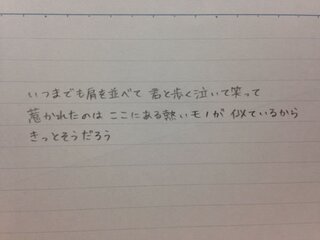 いつまでも肩を並べて 君と歩く泣いて笑って
惹かれたのは ここにある熱いモノが 似ているから
きっとそうだろう